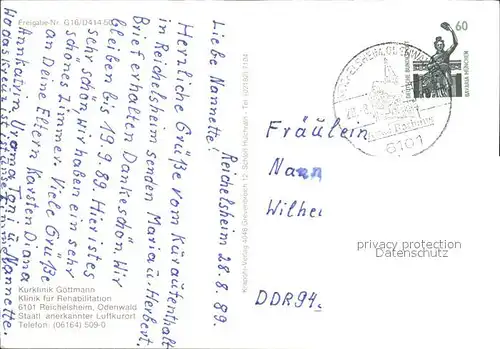 Freigabe-Nr. G16/0414
Reichelsheim 28.8.89.
Liebe Nannette!
Herzliche Grüße vom Kuraufenthalt
in Reichelsheim senden Maria u. Herbert.
Brief erhalten Dankeschön. Wir
bleiben bis 19.9.89. Hier ist es
sehr schön. Wir haben ein sehr
schönes Zimmer. Viele Grüße
an Deine Eltern Karsten Diana
Annkatrin Uroma Toni u. Nannette.
Wo das Kreuz ist ist unser Zimmer
Kurklinik Göttmann
Klinik für Rehabilitation
6101 Reichelsheim, Odenwald
Staatl. anerkannter Luftkurort
Telefon: (06164) 509-0
60
DEUTSCHE BUNDESPOST
BAVARIA MÜNCHEN
6101
Fräulein
Nann
Wilhe
DDR 94
privacy protection
Datenschutz